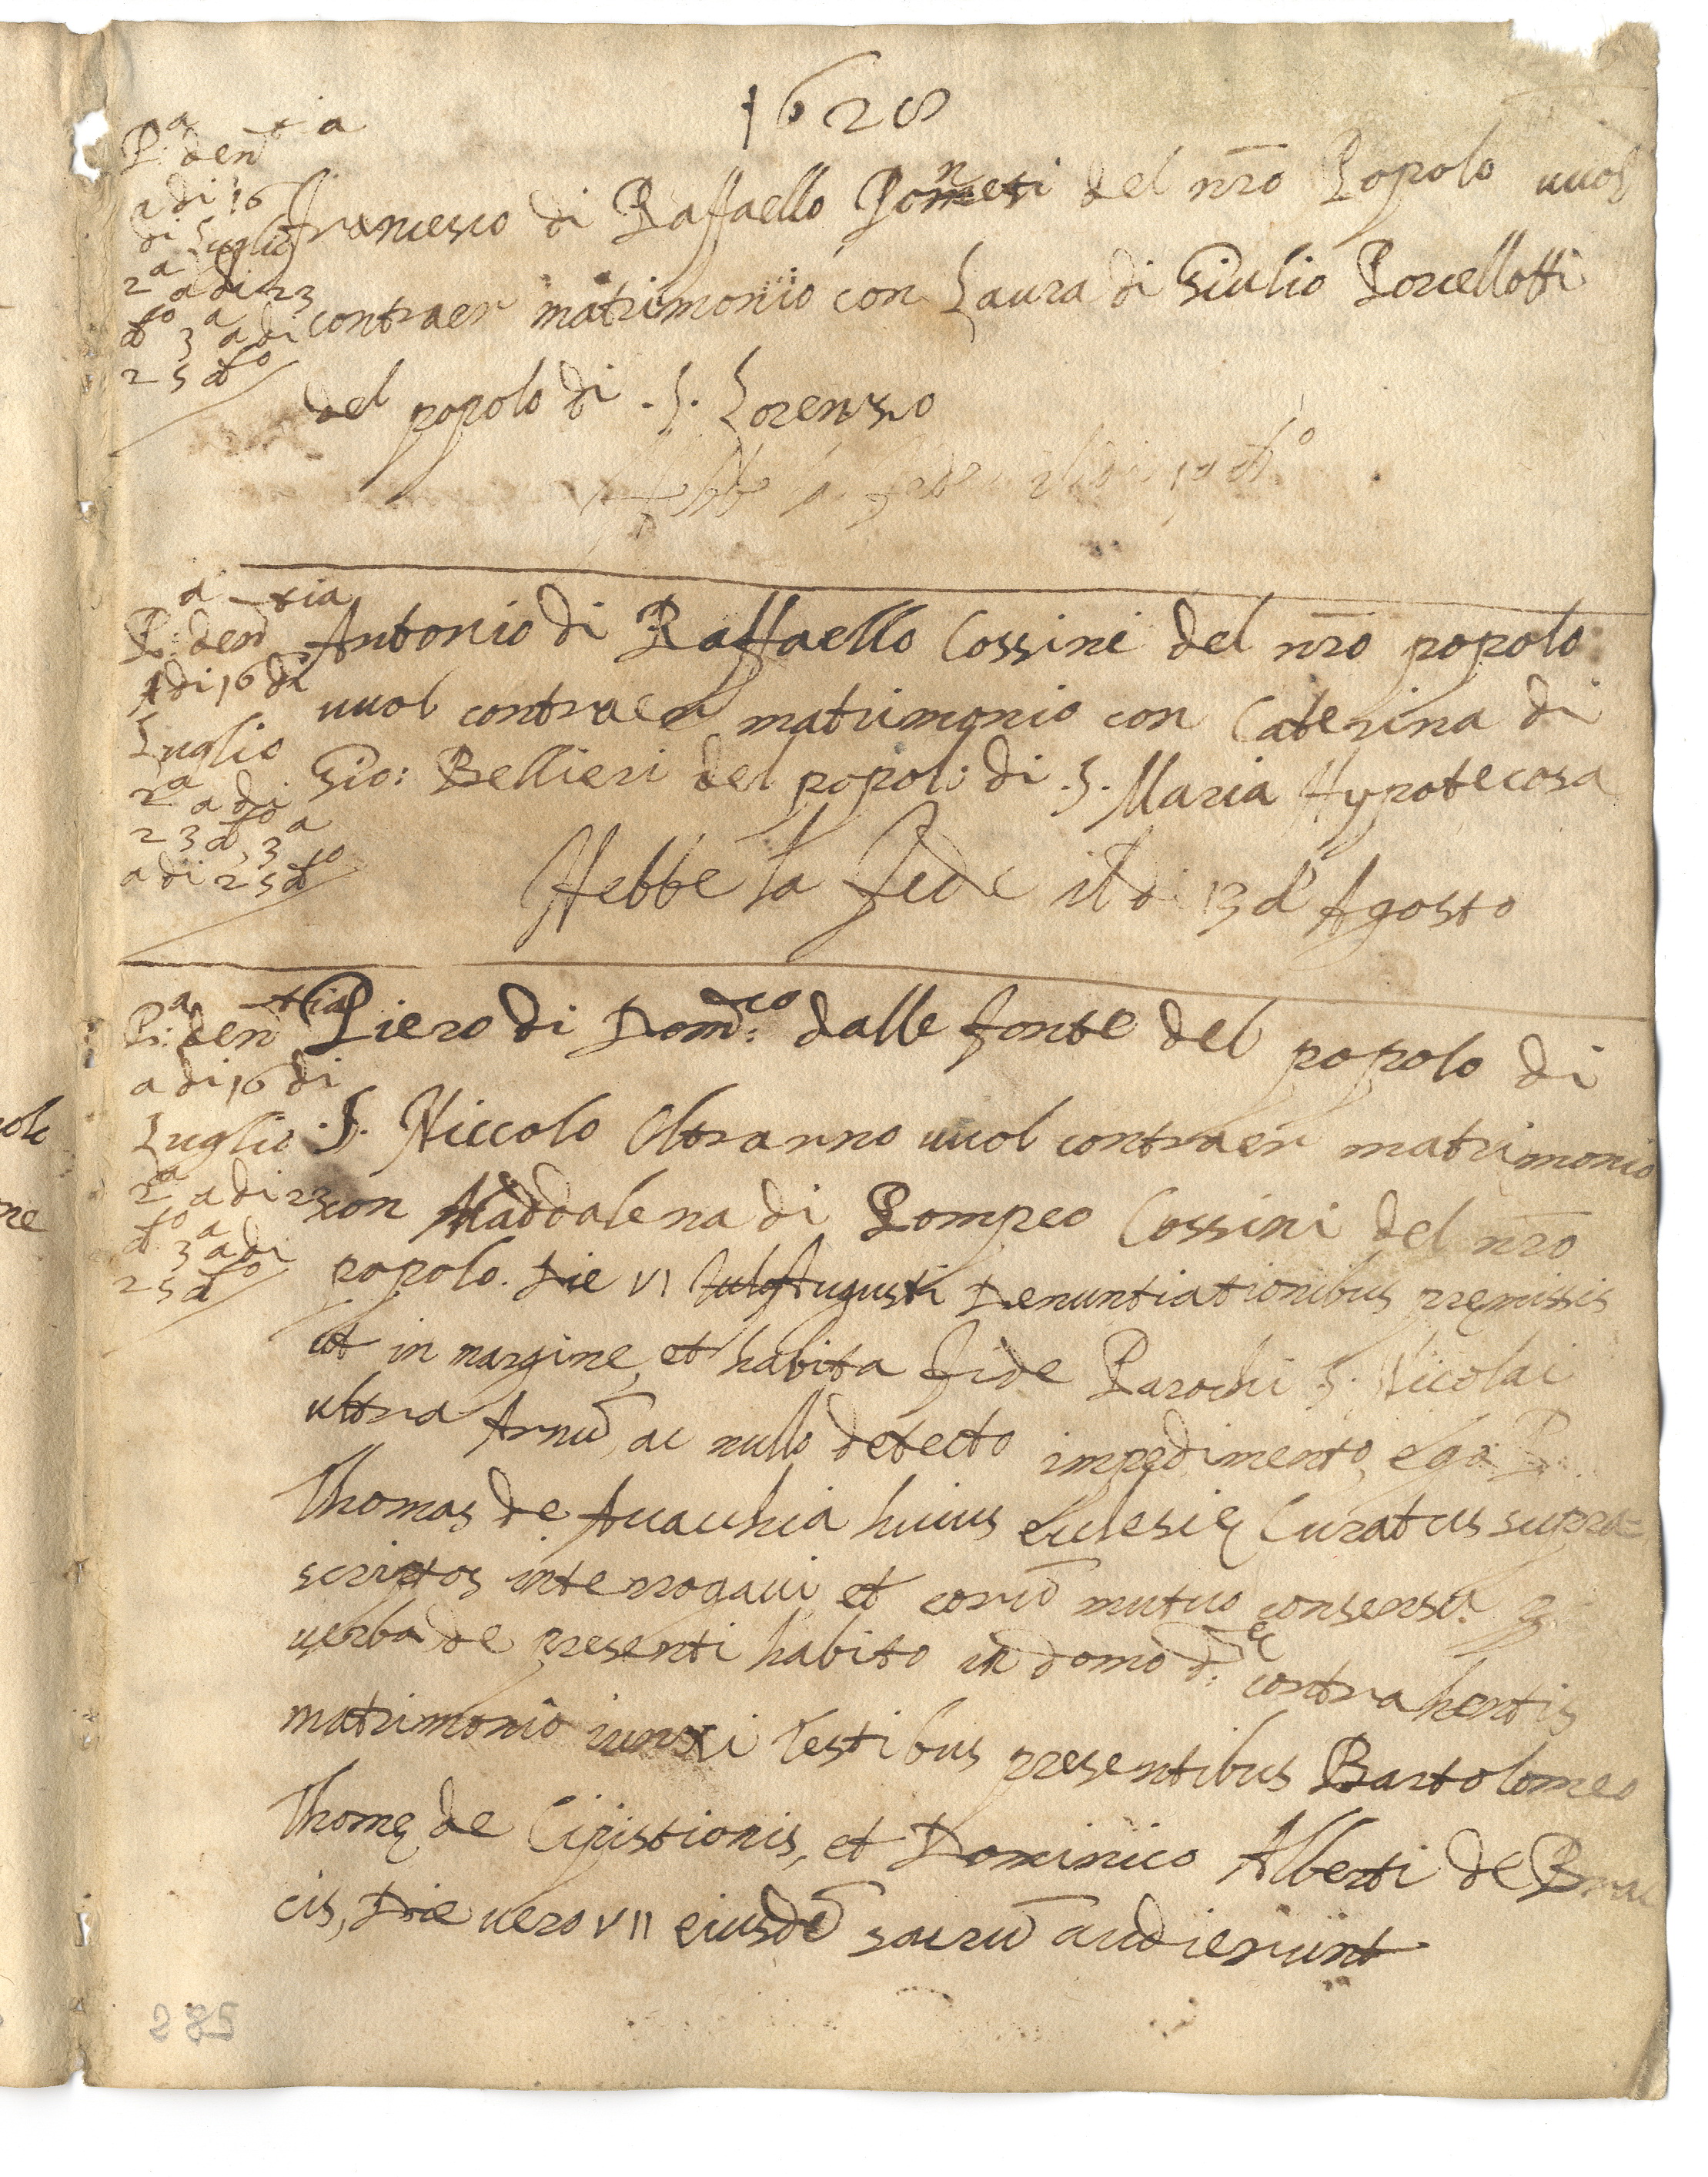 1628
P.a den.tia
a di 16
di Luglio
2a a di 23
d.to 3a a di
25 d.to
Francesco di Raffaello del nro Popolo vuol
contraer matrimonio con Laura di Giulio Porcellotti
del popolo di .S. Lorenzo
P.a den.tia
A di 16 di
Luglio
2a a di
23 d.to, 3a
a di 25 d.to
Antonio di Raffaello Cossini del nro popolo
vuol contraer matrimonio con Caterina di
Gio: Bellieri del popolo di .S. Maria Hypotecosa
Hebbe la fede il di 13 d' Agosto
P.a den.tia
a di 16 di
Luglio
2a a di 23
d.to 3a a di
25 d.to
Piero di Dom.co dalle fonte del popolo di
.S. Niccolo Oltrarno vuol contraer matrimonio
con Maddalena di Pompeo Cossini del nro
popolo. Die VI Augusti Denuntiationibus premissis
ut in margine, et habita fide Parochi S. Nicolai
ultra Arnū, ac nullo detecto impedimento, ego P.
Thomas de Avacchia huius Ecclesię Curatus supra=
scriptos interrogavi et eorū mutuo consensu
verba de presenti habito in domo d.ec contrahentis
matrimonio iunxi Testibus presentibus Bartolomeo
Thomę de Cipistionis, et Dominico Alberti de
cis, Die vero VII eiusdē sacrū audierunt
285